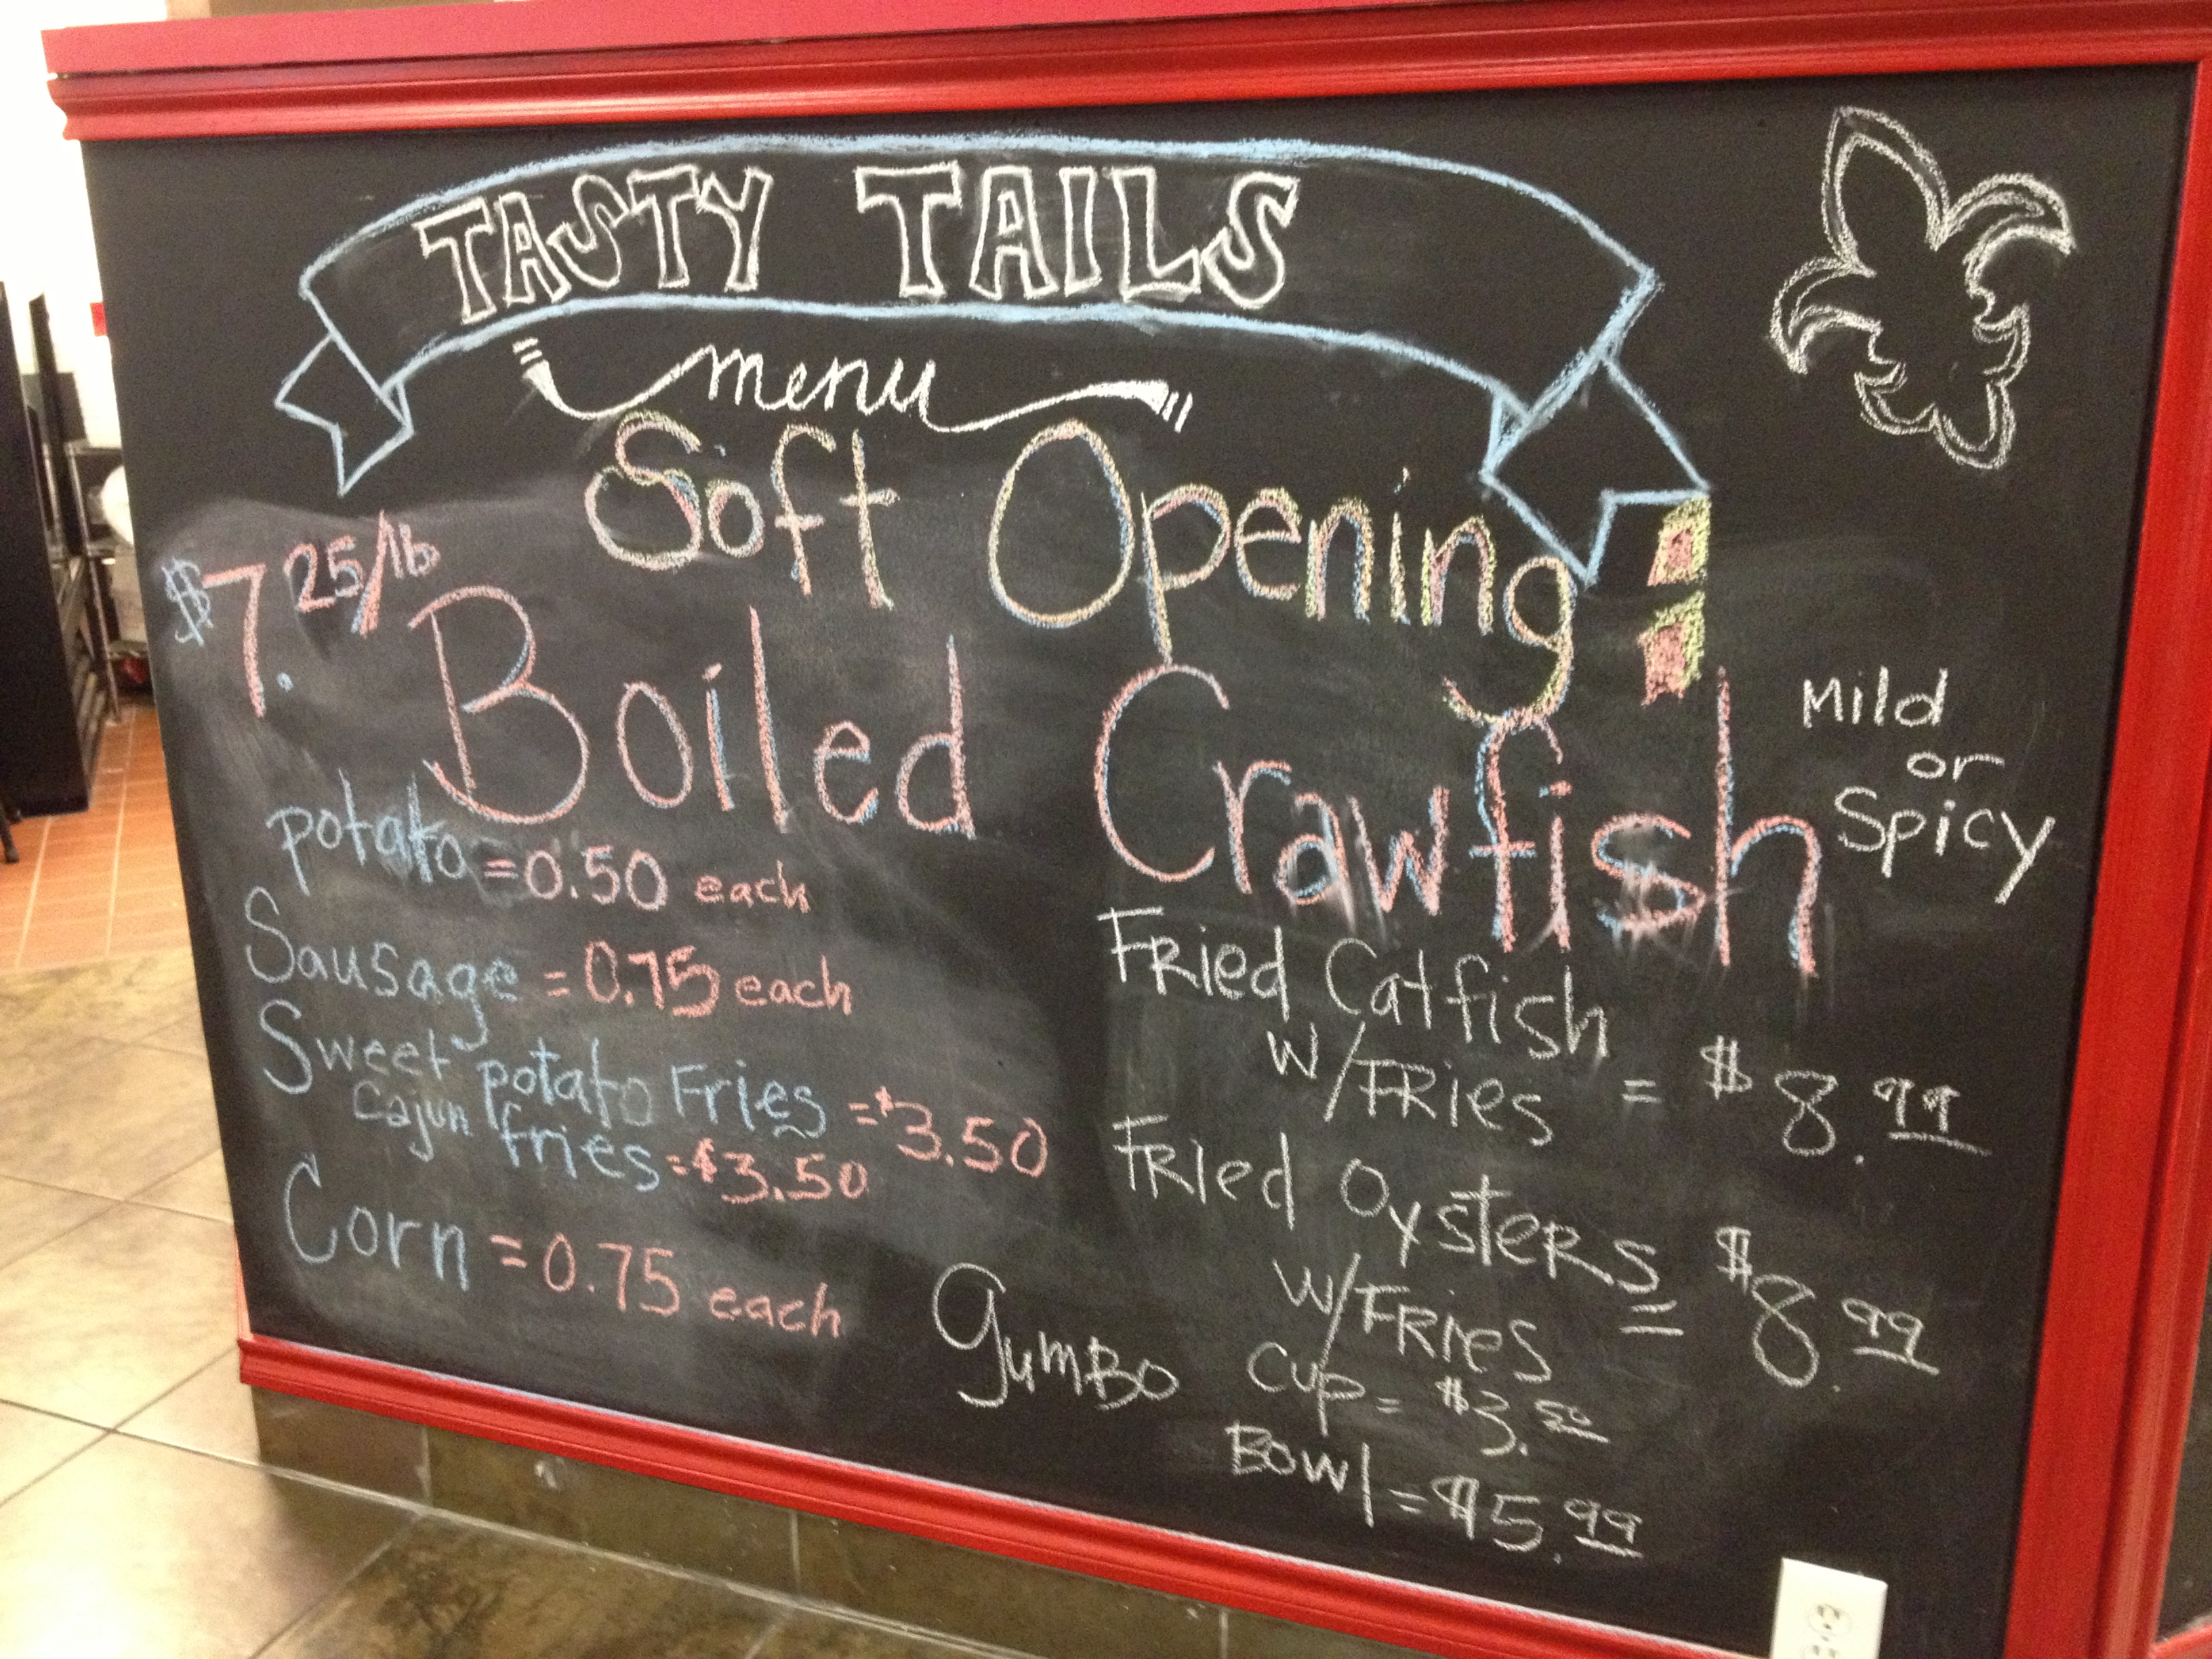 TASTY TAILS
menu
Soft Opening
$7.25/lb
Boiled Crawfish
Mild
or
Spicy
potato = 0.50 each
Sausage = 0.75 each
Sweet potato Fries = $3.50
Cajun fries = $3.50
Corn = 0.75 each
FRied Catfish
w/FRies = $8.99
FRied OysteRs = $8.99
w/FRies
gumBo Cup = $3.50
Bowl = $5.99